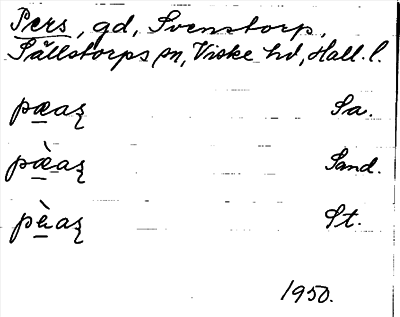 Pers, gd, Svenstorp,
Sällstorps sn, Viske hd, Hall. l.
pæaʒ Sa.
pæ̀aʒ Sand.
pɛ̀aʒ St.
1950.